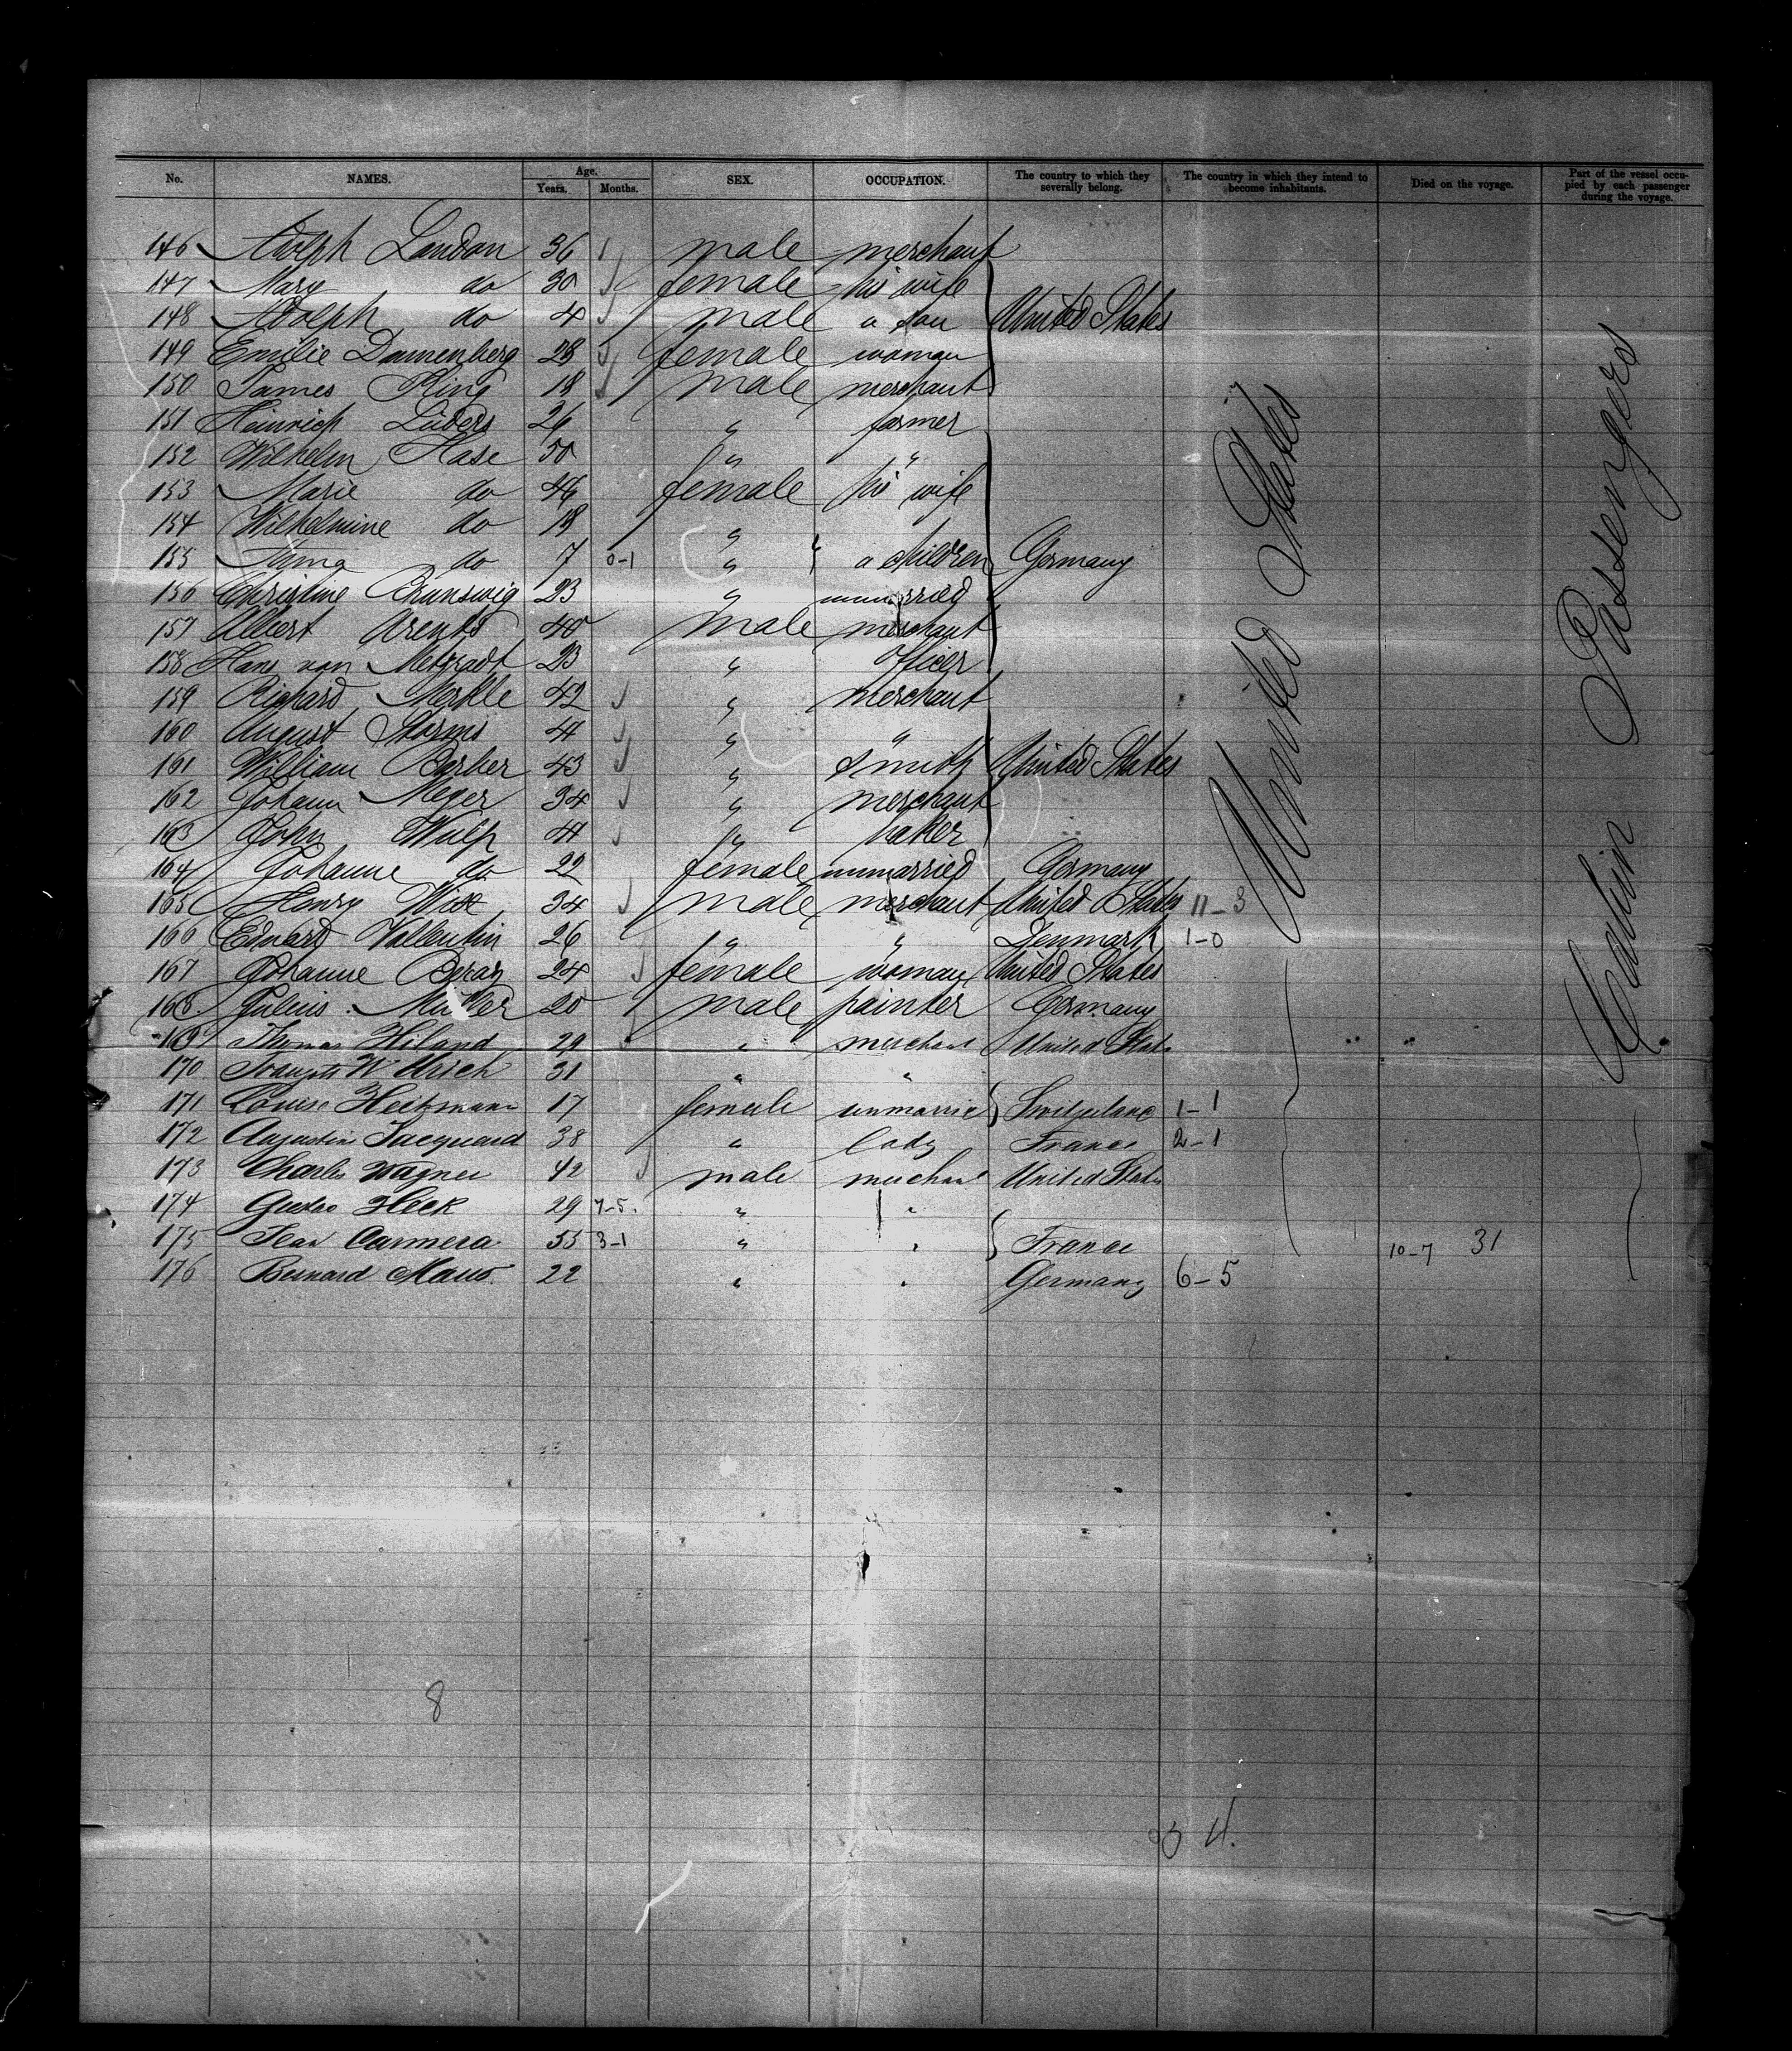 No. NAMES. Age. Years. Months. SEX. OCCUPATION. The country to which they severally belong. The country in which they intend to become inhabitants. Died on the voyage. Part of the vessel occupied by each passenger during the voyage.
146 Adolph Landon 36 male merchant
147 Mary do 30 female his wife
148 Adolph do 4 male a son United States
149 Emilie Dannenberg 28 female woman
150 James King 18 male merchant
151 Heinrich Lüders 26 " farmer
152 Wilhelm Hase 50 " "
153 Marie do 46 female his wife
154 Wilhelmine do 18 "
155 do 7 0-1 " a children Germany
156 Christine Brunswig 23 " unmarried
157 Albert Arents 40 male merchant
158 Hans von 23 " officer
159 Richard Merkle 42 " merchant
160 August Storms 41 " "
161 William Barber 43 " smith United States
162 Johann Meyer 34 " merchant
163 John Wulp 41 " baker
164 Johanne do 22 female unmarried Germany
165 Henry Witt 34 male merchant United States 11-3
166 Eduard Vallentin 26 " " Denmark 1-0
167 Johanne 24 female woman United States
168 Julius Müller 20 male painter Germany
169 Thomas Hiland 29 " merchant United States
170 31 " "
171 Louise Heitzmann 17 female unmarrie Switzerland 1-1
172 Augustine Jacquard 38 " lady France 2-1
173 Charles Wagner 42 male merchant United States
174 Gustav Heck 29 7-5. " "
175 Jean Carmera 55 3-1 " " France 10-7 31
176 Bernard 22 " " Germany 6-5
United States
Cabin Passengers
8